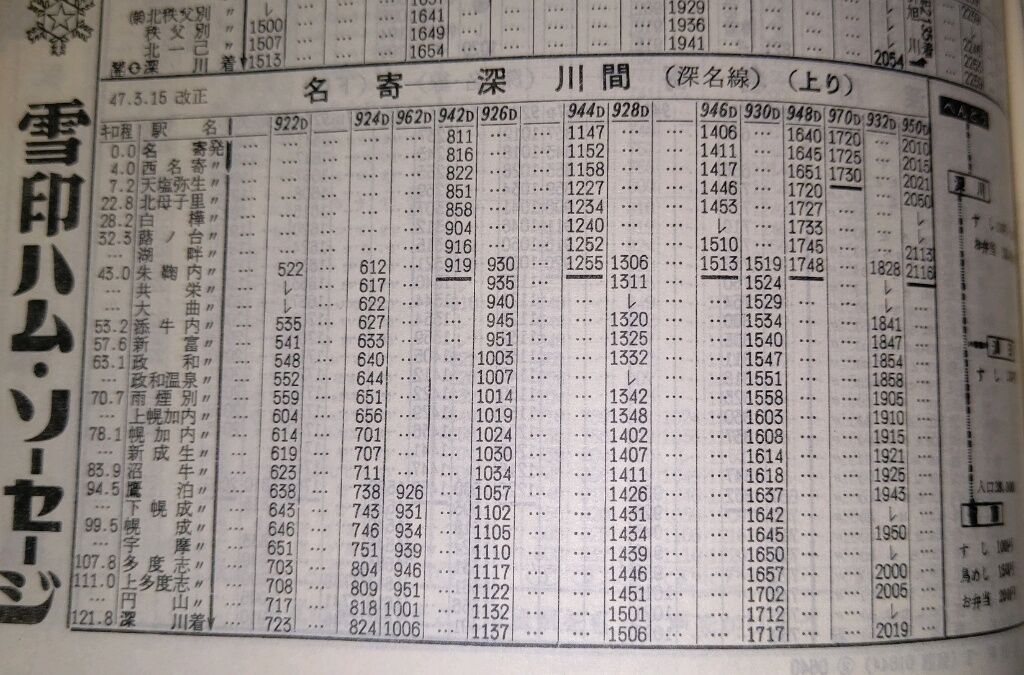 雪印ハム・ソーセージ
1641 1929
㈱北秩父別 〃 レ
秩父別 〃 1500 1649 1936
北一己 〃 1507 1654 1941
深川着 1513 2054
47.3.15 改正 名寄――深川間 (深名線) (上り)
キロ程 駅名 922D … 924D 962D 942D 926D 944D 928D 946D 930D 948D 970D 932D 950D
0.0 名寄発 811 1147 1406 1640 1720 2010
4.0 西名寄〃 816 1152 1411 1645 1725 2015
7.2 天塩弥生〃 822 1158 1417 1651 1730 2021
22.8 北母子里〃 851 1227 1446 1720 2050
28.2 白樺〃 858 1234 1453 1727 レ
32.3 蕗ノ台〃 904 1240 レ 1733 レ
… 湖畔〃 916 1252 1510 1745 2113
43.0 朱鞠内〃 522 612 919 930 1255 1306 1513 1519 1748 1828 2116
… 共栄〃 レ 617 935 1311 1524 レ
… 大曲〃 レ 622 940 レ 1529 レ
53.2 添牛内〃 535 627 945 1320 1534 1841
57.6 新富〃 541 633 951 1325 1540 1847
63.1 政和〃 548 640 1003 1332 1547 1854
… 政和温泉〃 552 644 1007 レ 1551 1858
70.7 雨煙別〃 559 651 1014 1342 1558 1905
… 上幌加内〃 604 656 1019 1348 1603 1910
78.1 幌加内〃 614 701 1024 1402 1608 1915
… 新成生〃 619 707 1030 1407 1614 1921
83.9 沼牛〃 623 711 1034 1411 1618 1925
94.5 鷹泊〃 638 738 926 1057 1426 1637 1943
… 下幌成〃 643 743 931 1102 1431 1642 レ
99.5 幌成〃 646 746 934 1105 1434 1645 1950
… 宇摩〃 651 751 939 1110 1439 1650 レ
107.8 多度志〃 703 804 946 1117 1446 1657 2000
111.0 上多度志〃 708 809 951 1122 1451 1702 2005
… 円山〃 717 818 1001 1132 1501 1712 レ
121.8 深川着 723 824 1006 1137 1506 1717 2019
べんとう
深川
すし
すし
すし
馬めし
お弁当